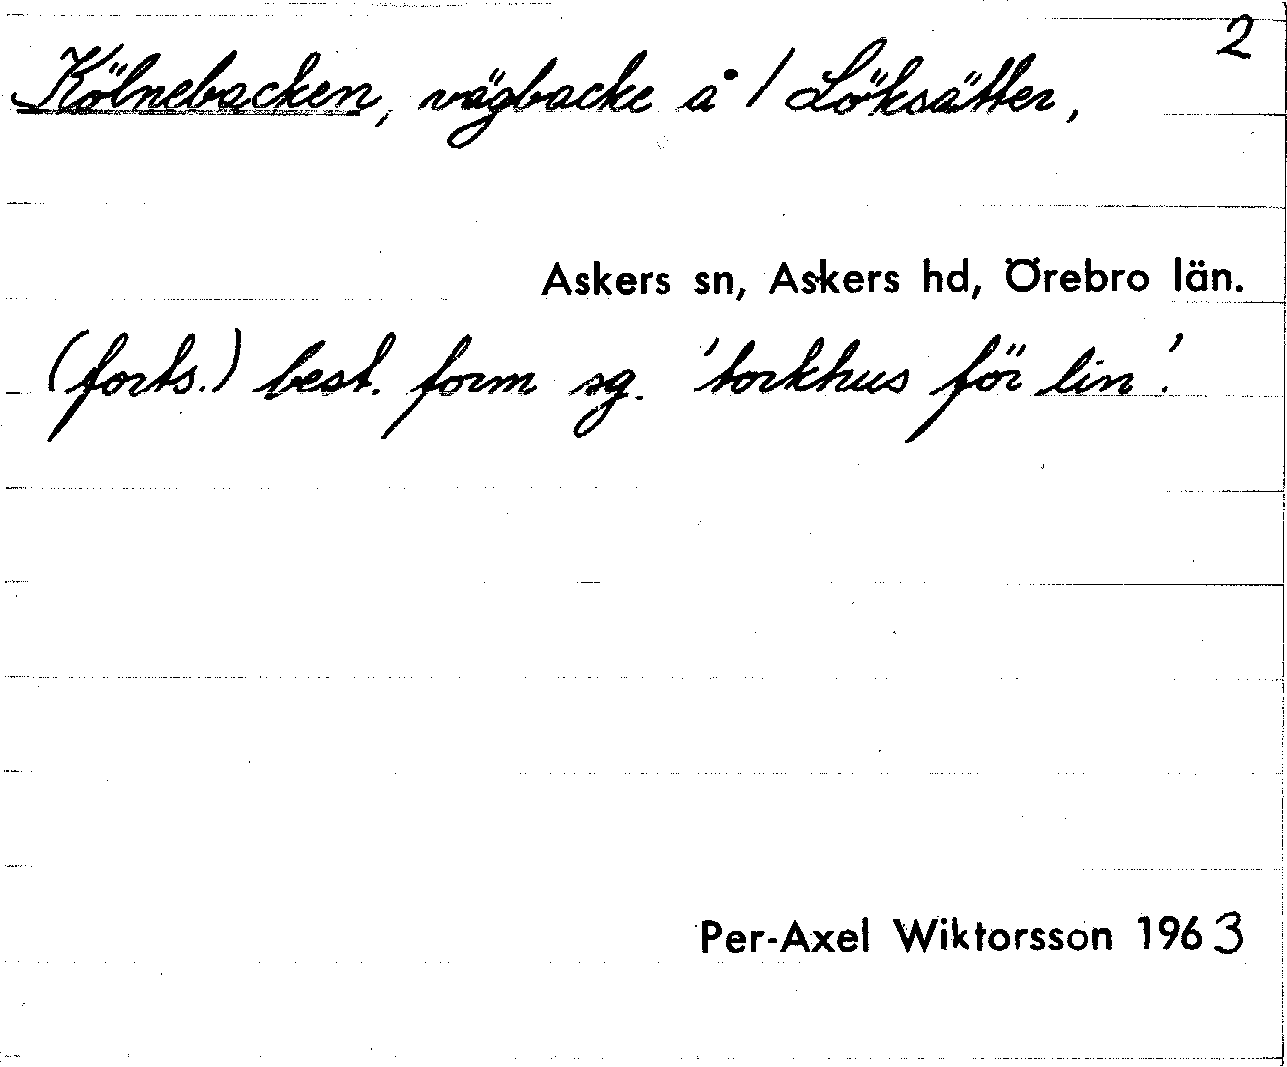 2
Kölnebacken, vägbacke å / Löksätter,
Askers sn, Askers hd, Örebro län.
(forts.) best. form sg. 'torkhus för lin'.
Per-Axel Wiktorsson 1963